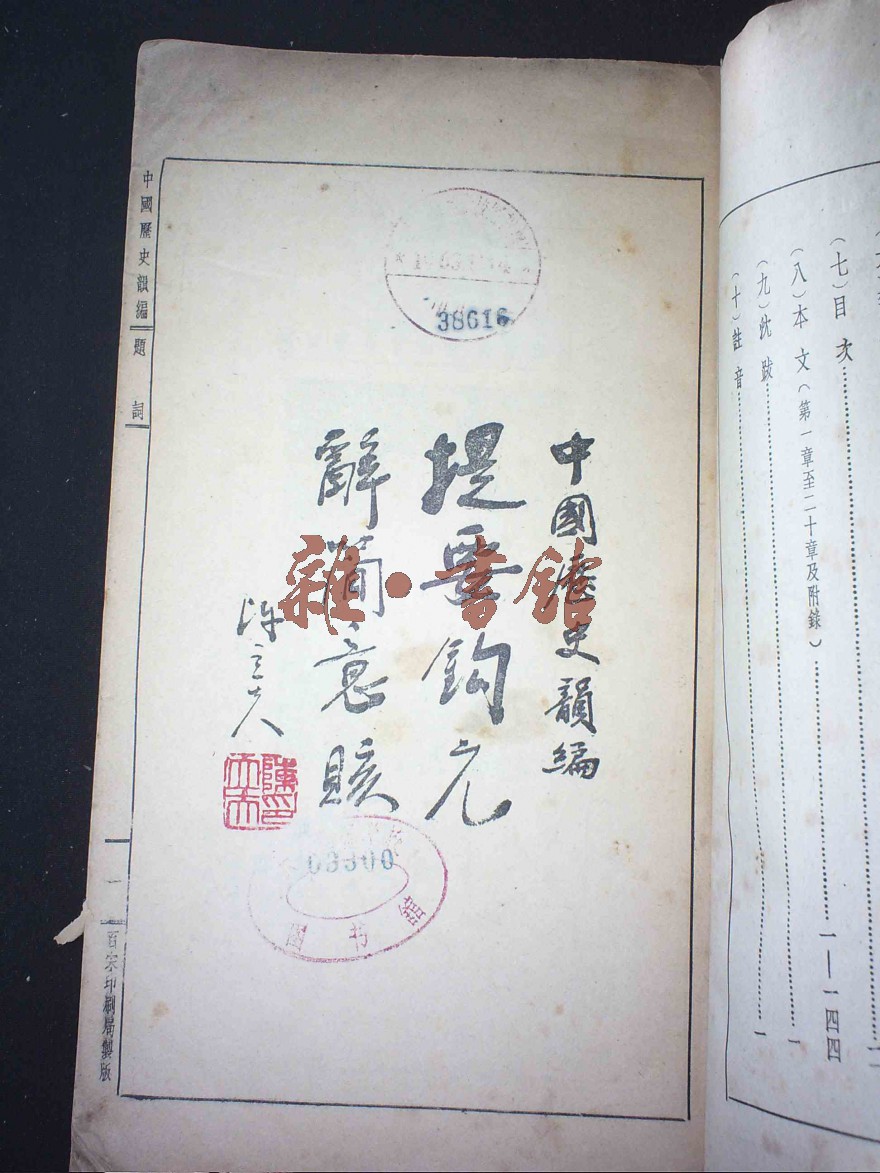 (七)目次
(八)本文(第一章至二十章及附錄)一—一四四
(九)沈跋 一
(十)註音 一
中國歷史韻編
提要鈎元
辭簡意賅
陳立夫
陳印立夫
雜·書館
38616
03300
图书馆
中國歷史韻編 題詞
一
百宋印刷局製版